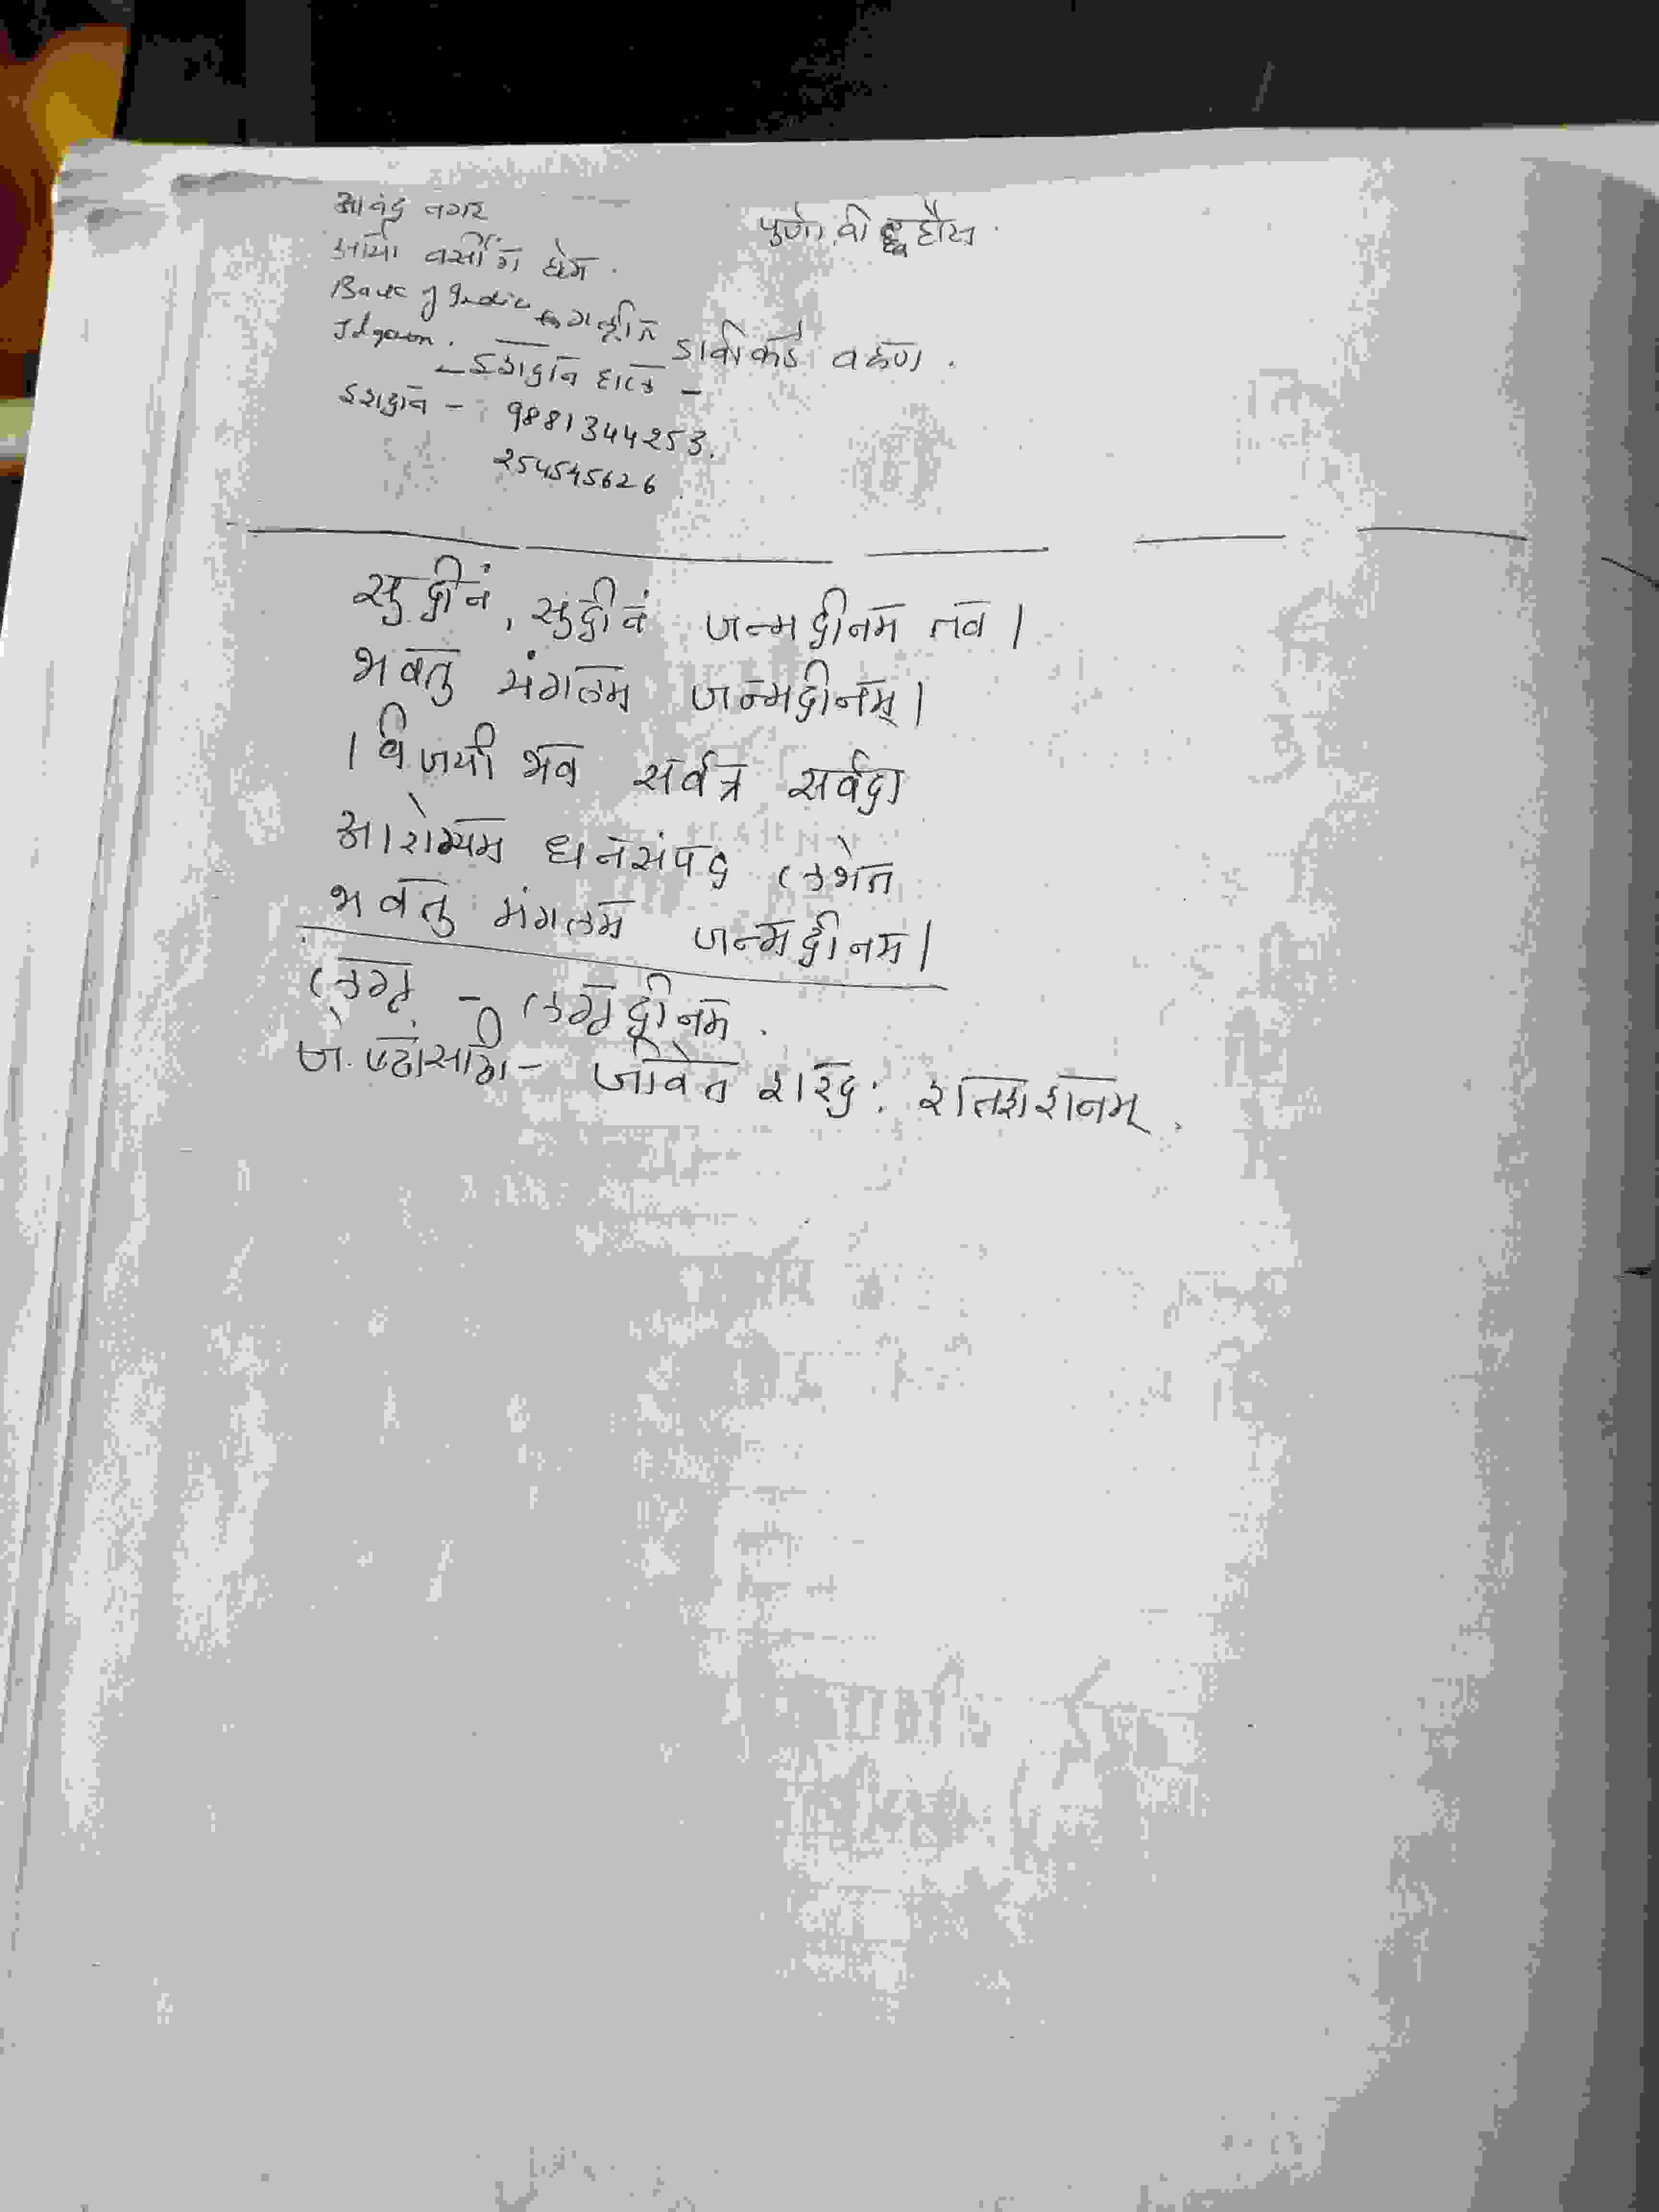 आनंद नगर
पुर्णा,
आर्या नर्सींग होम.
Bank of India
Jdgaon. डावीकडे वळण.
- इशदान हाल -
इशदान - 9881344253.
254545626
सुदीनं, सुदीनं जन्मदीनम तव |
भवतु मंगलम जन्मदीनम् |
| विजयी भव सर्वत्र सर्वदा
आरोग्यम धनसंपद लभेत
भवतु मंगलम जन्मदीनम |
लग्न - लग्नदीनम.
जीवेत शरद: शतम्